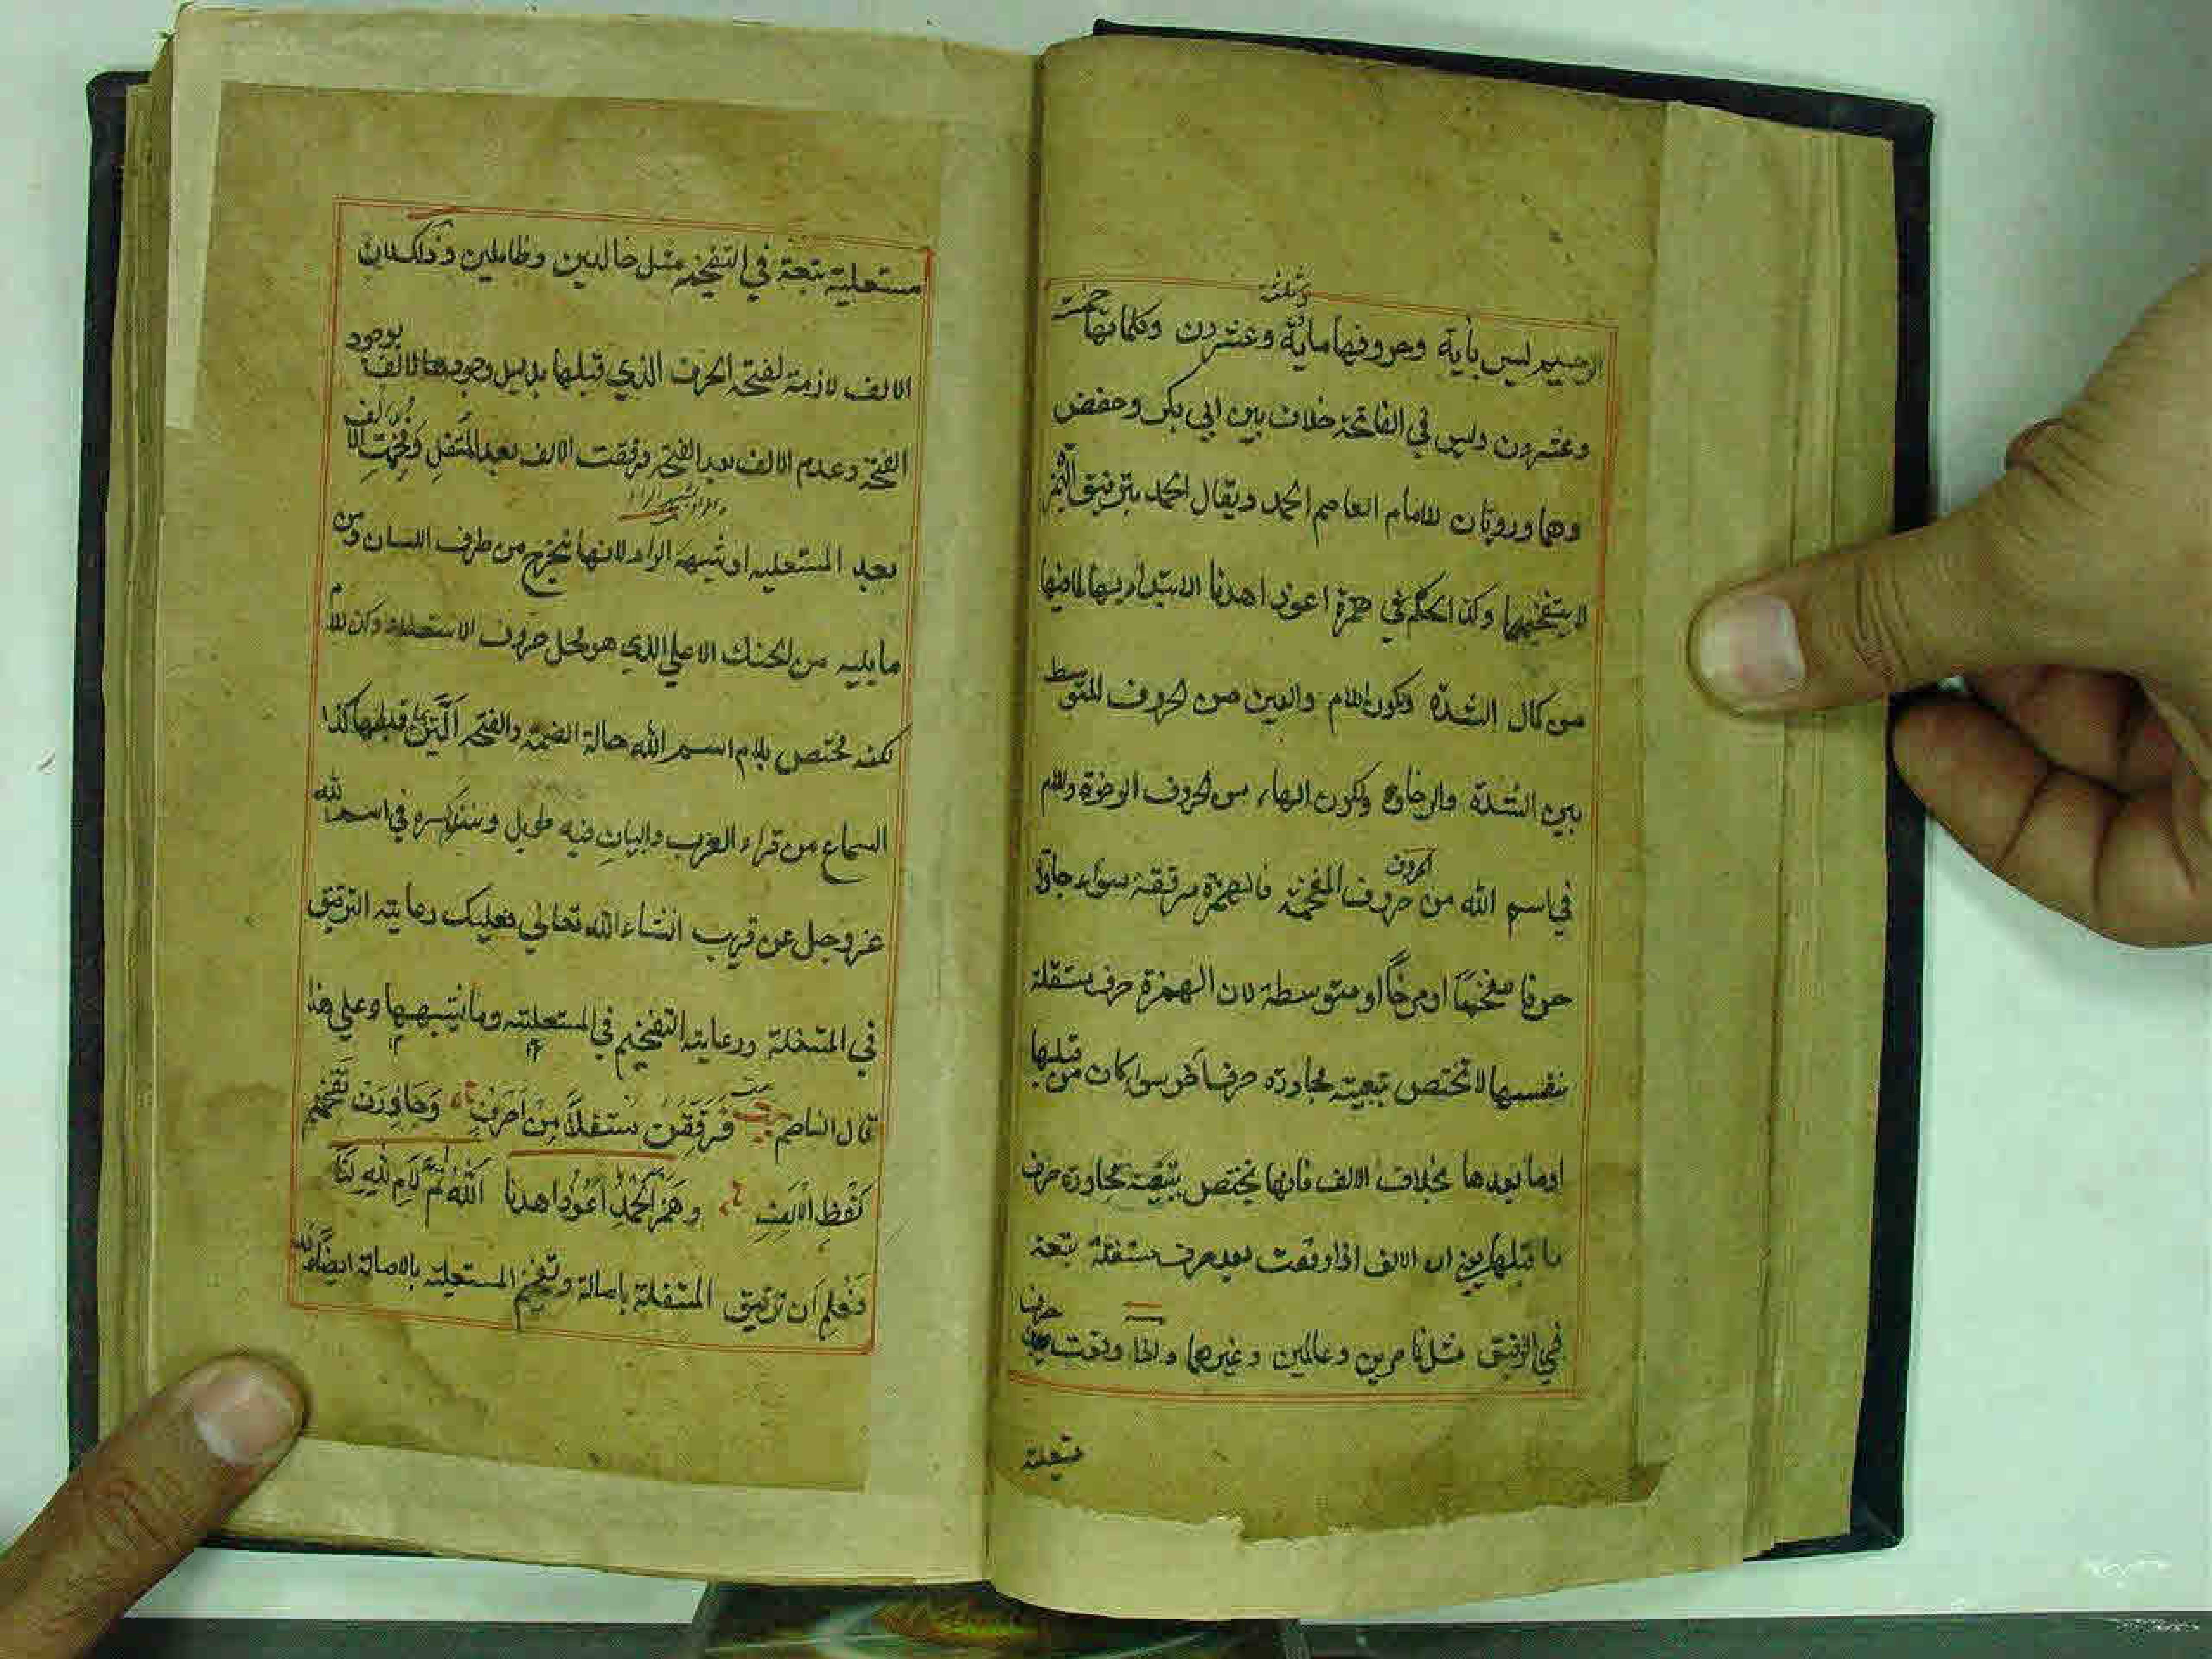 الرحيم ليس بأية وحروفها ماية وثلثة وعشرون وكلماتها خمسة
وعشرون وليس في الفاتحة خلاف بين ابي بكر وحفص
وهما ورويان للامام العاصم الحمد ويقال الحمد بترقيق الهمزة
لا بتفخيمها وكذا الحكم في همزة اعوذ اهدنا الابتداء بها لما فيها
من كمال الشدة وكون اللام والعين من الحروف المتوسط
بين الشدة والرخاوة وكون الهاء من الحروف الرخوة واللام
في اسم الله من حروف المفخمة فالهمزة مرققة سواء جاورة
الحروف
حرفا مفخما او مرخا او متوسطة لان الهمزة حرف مستفلة
بنفسها لا تختص بتبعية مجاورة حرف آخر سواء كان من قبلها
او ما بعدها بخلاف الالف فانها يختص بتبعية مجاورة حرف
ما قبلها يعني ان الالف اذا وقعت بعد حرف مستفلة تبعته
في الترقيق مثل نا مرين وعالمين وغيرهما واذا وقعت بعد حرف
مستعلية
مستعلية تبعته في التفخيم مثل خالدين وظالمين وذلك لان
الالف لازمة لفتحة الحرف الذي قبلها بدليل وجودها لالف بوجود
الفتحة وعدم الالف بعد الفتحة فرققت الالف بعد المستفل وفخمت الالف
بعد المستعلية او شبهه الراء لانها تخرج من طرف اللسان ومن
ما يليه من الحنك الاعلي الذي هو محل حروف الاستعلاء وكذا اللام
لكنه مختص بلام اسم الله حالة الضمة والفتحة التي قبلها كذا
السماع من قراء العرب والبيان فيه طويل وسنذكره في اسم الله
عز وجل عن قريب انشاء الله تعالي فعليك رعاية الترقيق
في المستفلة ورعاية التفخيم في المستعلية وما اشبهها وعلي هذا
قال الناظم فرققن مستفلا من احرف وحاذرن تفخيم
كلفظ الالف وهمز الحمد اعوذ اهدنا الله ثم لام لله لنا
فعلم ان ترقيق المستفلة باصالة وتفخيم المستعلية بالاصالة ايضا